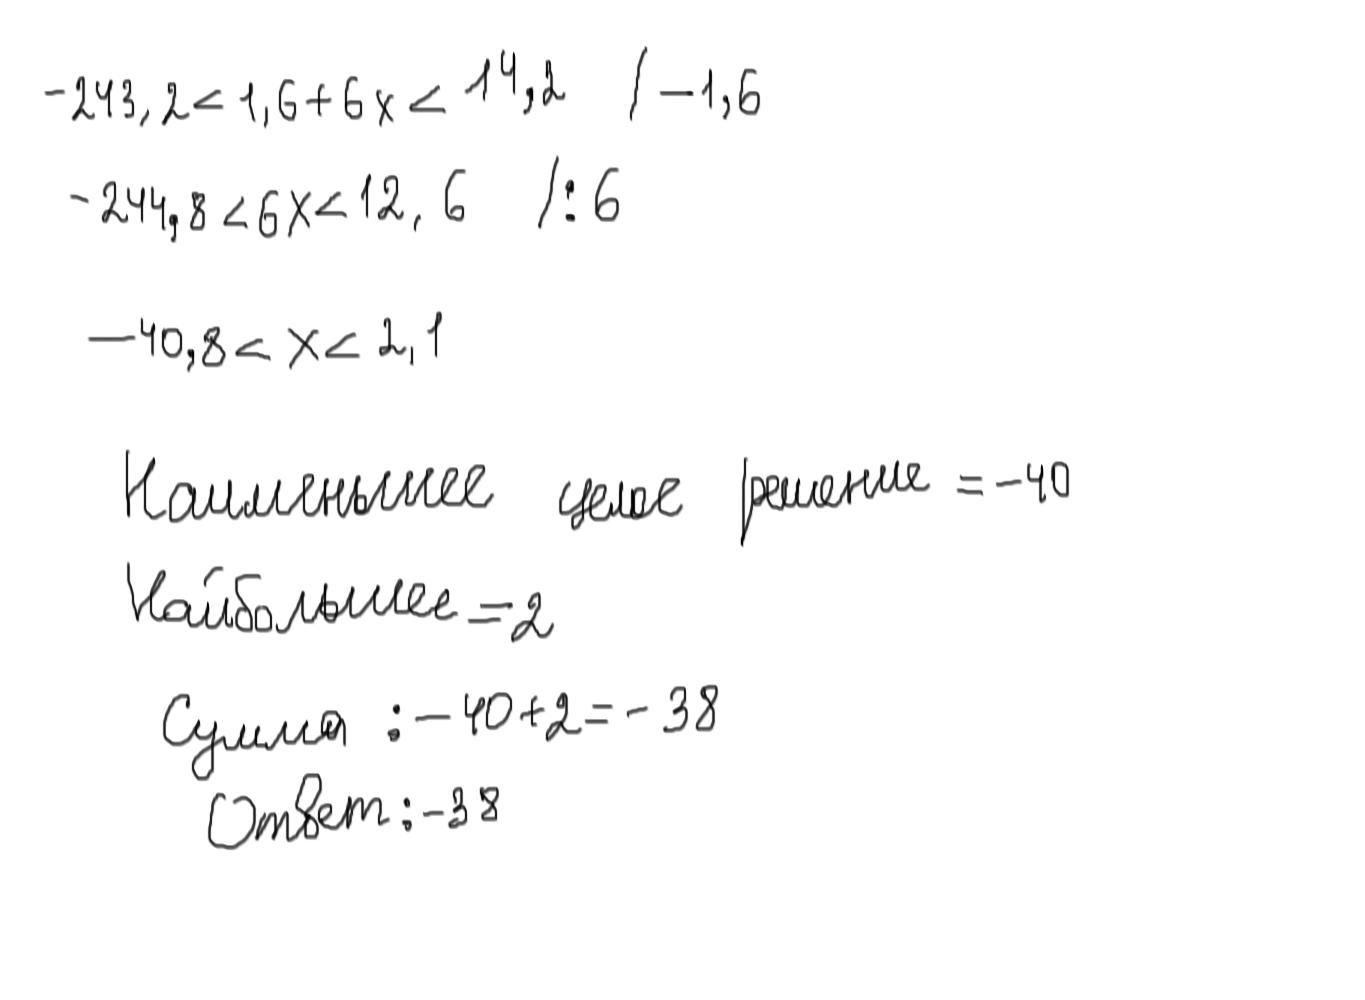 -243,2<1,6+6x<14,2 /-1,6
-244,8<6x<12,6 /:6
-40,8<x<2,1
Наименьшее целое решение =-40
Найбольшее =2
Сумма :-40+2=-38
Ответ:-38